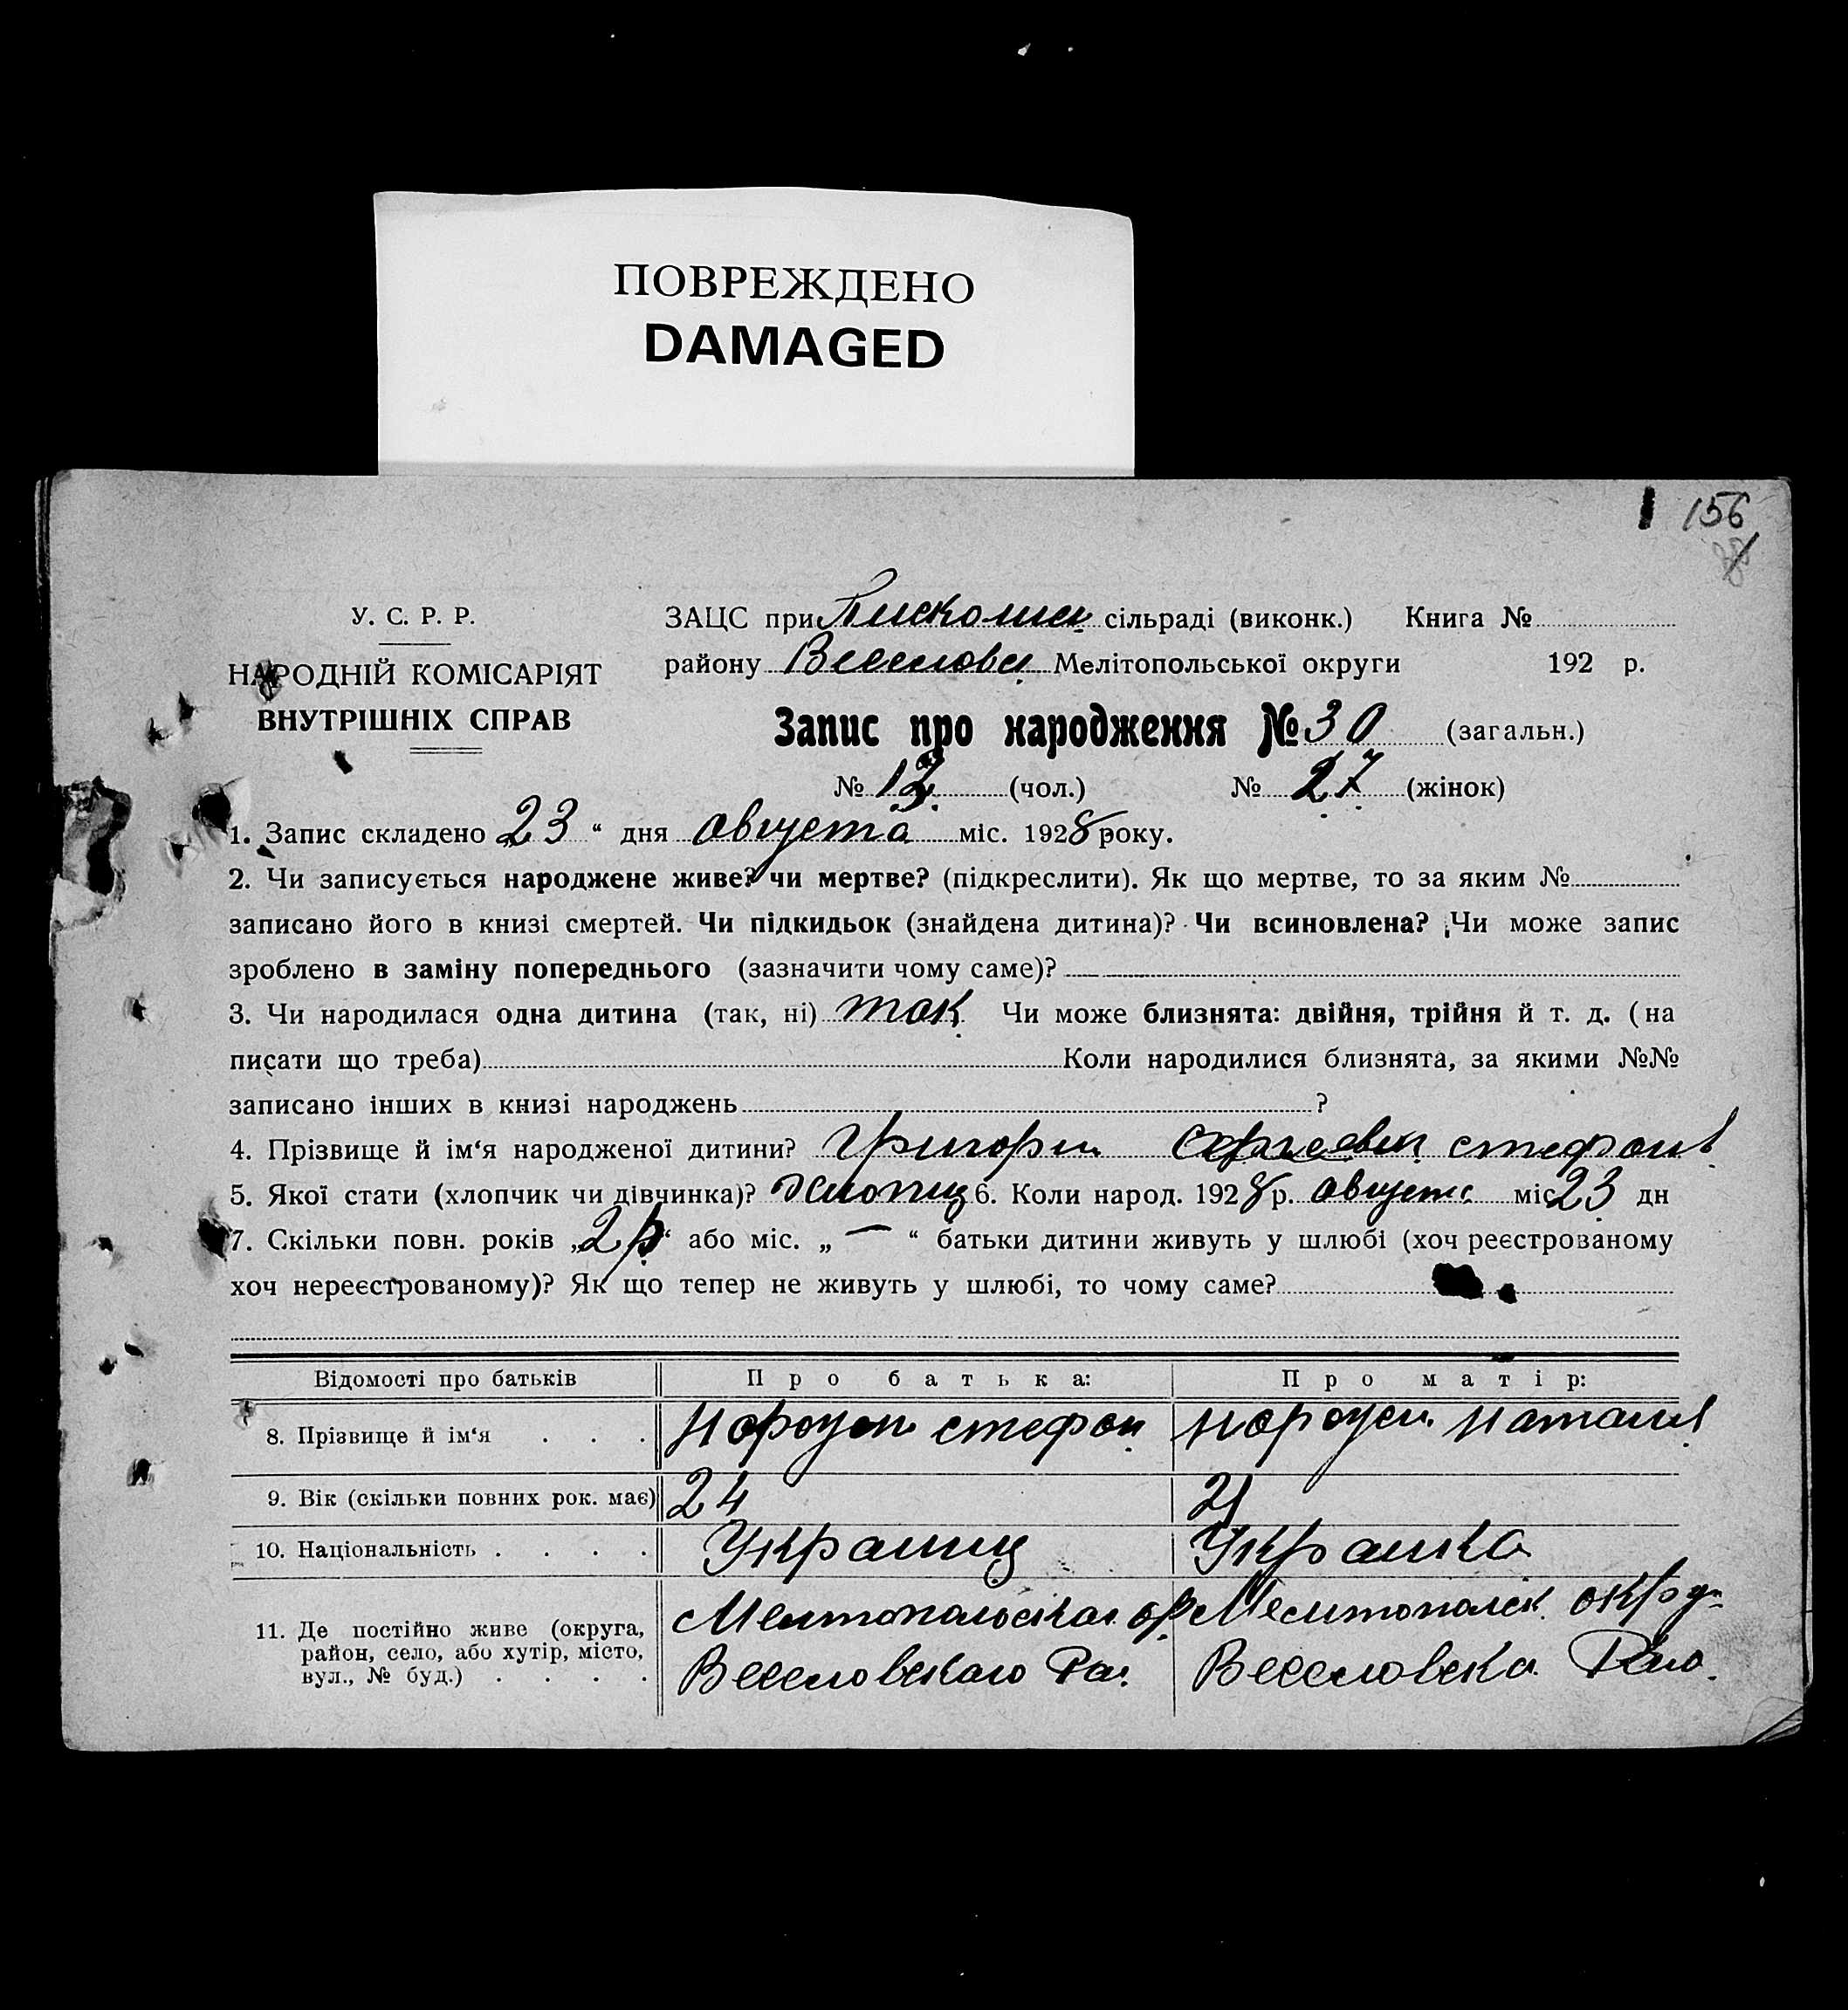 ПОВРЕЖДЕНО
DAMAGED
156
У. С. Р. Р.
НАРОДНІЙ КОМІСАРІЯТ
ВНУТРІШНІХ СПРАВ
ЗАЦС при сільраді (виконк.) Книга №
району Мелітопольської округи 192 р.
Запис про народження № 30 (загальн.)
№ 13 (чол.) № 27 (жінок)
1. Запис складено „23“ дня августа міс. 1928 року.
2. Чи записується народжене живе? чи мертве? (підкреслити). Як що мертве, то за яким №
записано його в книзі смертей. Чи підкидьок (знайдена дитина)? Чи всиновлена? Чи може запис
зроблено в заміну попереднього (зазначити чому саме)?
3. Чи народилася одна дитина (так, ні) так Чи може близнята: двійня, трійня й т. д. (на
писати що треба) Коли народилися близнята, за якими №№
записано інших в книзі народжень ?
4. Прізвище й ім‘я народженої дитини? Григори
5. Якої стати (хлопчик чи дівчинка)? 6. Коли народ. 1928 р. августа міс 23 дн
7. Скільки повн. років „2 р“ або міс. „ — “ батьки дитини живуть у шлюбі (хоч реєстрованому
хоч нереєстрованому)? Як що тепер не живуть у шлюбі, то чому саме?
Відомості про батьків Про батька: Про матір:
8. Прізвище й ім‘я . . . стефан
9. Вік (скільки повних рок. має) 24 21
10. Національність . . . . Украинц Украинка
11. Де постійно живе (округа,
район, село, або хутір, місто,
вул., № буд.) . . . .
Веселовскаго Ра. Веселовска